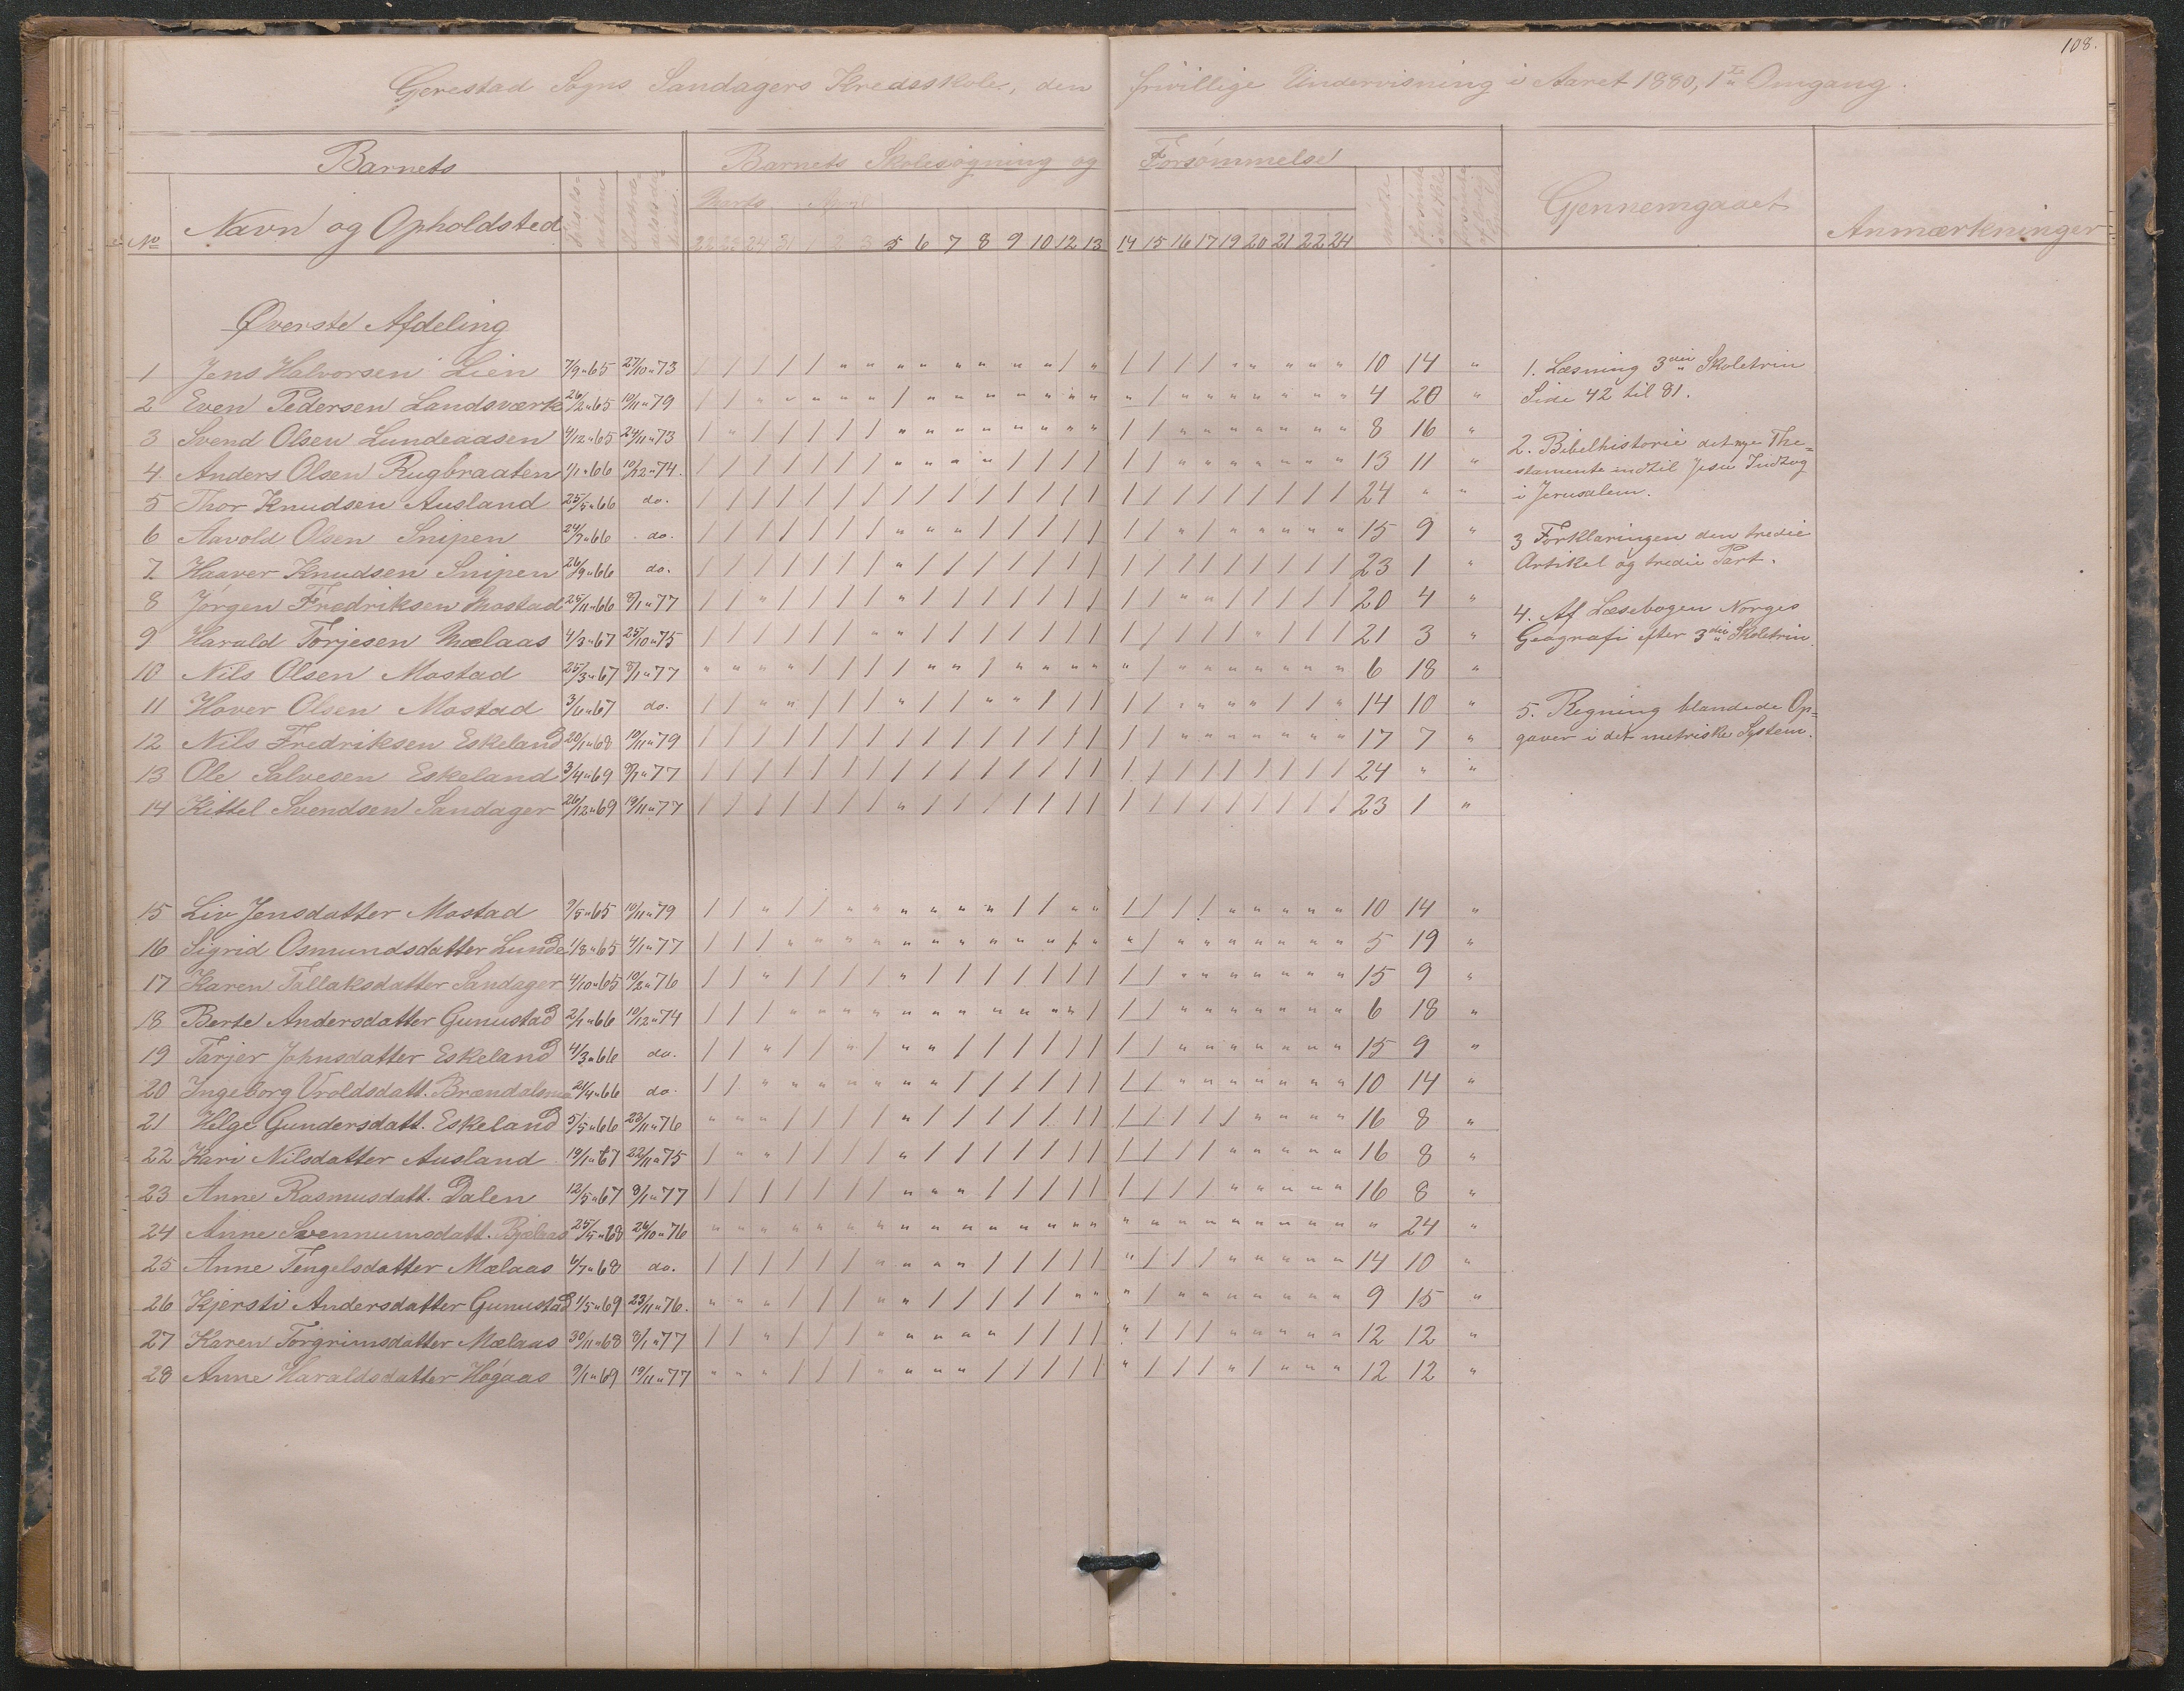 108.
Gjerestad Sogns Sandagers Kredsskole, den frivillige Undervisning i Aaret 1880, 1ste Omgang.
Barnets
Barnets Skolesøgning og Forsømmelse
No
Navn og Opholdsted
Marts April
22 23 24 31 1 2 3 5 6 7 8 9 10 12 13 14 15 16 17 19 20 21 22 24
Gjennemgaaet
Anmærkninger
Øverste Afdeling
1 Jens Halvorsen Lien 7/9 " 65 27/10 " 73 / / / / / " " " " " " " " / " / / / / " " " " " 10 14 "
2 Even Pedersen Landsværk 26/2 " 65 10/11 " 79 / / " " " " " / " " " " " " " " / " " " " " " " 4 20 "
3 Svend Olsen Lundeaasen 4/12 " 65 24/11 " 73 / " / / / / / " " " " " " " " / / " " " " " " " 8 16 "
4 Anders Olsen Rugbraaten 1/1 " 66 10/12 " 74. / / / / / / / " " " " / / / / / / " " " " " " " 13 11 "
5 Thor Knudsen Ausland 25/5 " 66 do. / / / / / / / / / / / / / / / / / / / / / / / / 24 " "
6 Aavold Olsen Snipen 24/7 " 66 do. / / / / / / / " " " / / / / / / / " / " " " " " 15 9 "
7 Haaver Knudsen Snipen 26/9 " 66 do. / / / / / / / " / / / / / / / / / / / / / / / / 23 1 "
8 Jørgen Fredriksen Mostad 25/11 " 66 8/1 " 77 / / " / / / / " / / / / / / / / / " " / / / / / 20 4 "
9 Harald Torjesen Mælaas 4/3 " 67 25/10 " 75 / / / / / / " " / / / / / / / / / / / / " / / / 21 3 "
10 Nils Olsen Mostad 25/3 " 67 8/1 " 77 " " " " / / / / " " / " " " " " / " " " " " " " 6 18 "
11 Hover Olsen Mostad 3/6 " 67 do. / / " " / / / " / / " " / / / / / " " " " / / " 14 10 "
12 Nils Fredriksen Eskeland 20/1 " 68 10/11 " 79 / / / / / / / / / / / / / / / / / " " " " " " " 17 7 "
13 Ole Salvesen Eskeland 3/4 " 69 8/1 " 77 / / / / / / / / / / / / / / / / / / / / / / / / 24 " "
14 Kittel Svendsen Sandager 26/12 " 69 19/11 " 77 / / / / / / / " / / / / / / / / / / / / / / / / 23 1 "
15 Liv Jensdatter Mostad 9/5 " 65 10/11 " 79 / / " / / " " " " " " / / " " / / / / " " " " " 10 14 "
16 Sigrid Osmundsdatter Lunde 1/8 " 65 4/1 " 77 / / / " " " " " " " " " " / " " / " " " " " " " 5 19 "
17 Karen Tallaksdatter Sandager 4/10 " 65 10/2 " 76 / / " / / / / " / / / / / / / / / " " " " " " " 15 9 "
18 Berte Andersdatter Gunustad 2/1 " 66 10/12 " 74 / / / " " " " " " " " " " " / / / " " " " " " " 6 18 "
19 Tarjer Johnsdatter Eskeland 4/3 " 66 do. / / " / / " / " " / / / / / / / / " " " " " " " 15 9 "
20 Ingeborg Vroldsdatt. 21/4 " 66 do. / / " " " " " " " / / / / / / / / " " " " " " " 10 14 "
21 Helge Gundersdatt. Eskeland 5/5 " 66 23/11 " 76 " " " / / / / " / / / / / / / / / / / / " " " " 16 8 "
22 Kari Nilsdatter Ausland 19/1 " 67 22/11 " 75 / " " / / / / " / / / / / / / / / / / " " " " " 16 8 "
23 Anne Rasmusdatt. Dalen 12/5 " 67 8/1 " 77 / / / / / / / " " " / / / / / / / / / " " " " " 16 8 "
24 Anne Svennumsdatt. 25/5 " 68 26/10 " 76 " " " " " " " " " " " " " " " " " " " " " " " " " 24 "
25 Anne Tengelsdatter Mælaas 6/7 " 68 do. / / / / / / " " " " / / / / / " / / / " " " " " 14 10 "
26 Kjersti Andersdatter Gunustad 1/5 " 69 23/11 " 76. " " " / / / " " / / / / / " " " / " " " " " " " 9 15 "
27 Karen Torgrimsdatter Mælaas 30/11 " 68 8/1 " 77 / / " / / / " " " " " / / / / " / / / " " " " " 12 12 "
28 Anne Haraldsdatter Høgaas 9/1 " 69 19/11 " 77 " " " / / / " " " " / / / / / " / / / " / " " " 12 12 "
1. Læsning 3die Skoletrin
Side 42 til 81.
2. Bibelhistorie det nye The=
stamente indtil Jesu Indtog
i Jerusalem.
3 Forklaringen den tredie
Artikel og tredie Part.
4. Af Læsebogen Norges
Geografi efter 3die Skoletrin.
5. Regning blandede Op=
gaver i det metriske System.